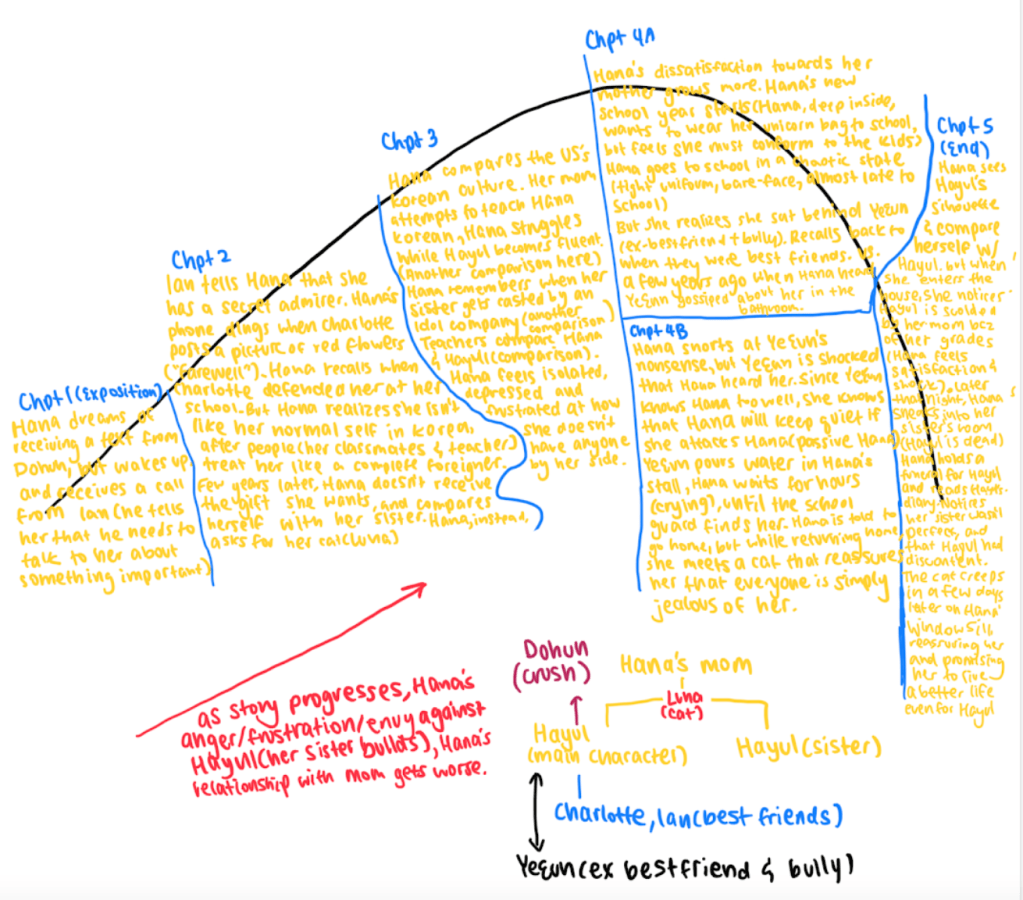 Chpt 1 (Exposition)
Hana dreams of
receiving a text from
Dohun, but wakes up
and receives a call
from Ian (he tells
her that he needs to
talk to her about
something important)
Chpt 2
Ian tells Hana that she
has a secret admirer. Hana's
phone dings when Charlotte
posts a picture of red flowers
("farewell"). Hana recalls when
Charlotte defended her at her
school. But Hana realizes she isn't
like her normal self in Korea,
after people (her classmates & teacher)
treat her like a complete foreigner.
Few years later, Hana doesn't receive
the gift she wants, and compares
herself with her sister. Hana, instead,
asks for her cat (Luna)
Chpt 3
Hana compares the US's
Korean culture. Her mom
attempts to teach Hana
Korean, Hana struggles
while Hayul becomes fluent.
(Another comparison here)
Hana remembers when her
sister gets casted by an
idol company (another
comparison)
Teachers compare Hana
& Hayul (comparison).
Hana feels isolated,
depressed and
frustrated at how
she doesn't
have anyone
by her side.
Chpt 4A
Hana's dissatisfaction towards her
mother grows more. Hana's new
school year starts (Hana, deep inside,
wants to wear her unicorn bag to school,
but feels she must conform to the kids)
Hana goes to school in a chaotic state
(tight uniform, bare-face, almost late to
school)
But she realizes she sat behind YeEun
(ex-best friend + bully). Recalls back to
when they were best friends.
a few years ago when Hana heard
YeEun gossiped about her in the
bathroom.
Chpt 4B
Hana snorts at YeEun's
nonsense, but YeEun is shocked
that Hana heard her. Since YeEun
knows Hana too well, she knows
that Hana will keep quiet if
she attacks Hana (passive Hana)
YeEun pours water in Hana's
stall, Hana waits for hours
(crying), until the school
guard finds her. Hana is told to
go home, but while returning home,
she meets a cat that reassures
her that everyone is simply
jealous of her.
Chpt 5
(End)
Hana sees
Hayul's
silhouette
& compare
herself w/
Hayul. but when
she enters the
house, she notices
Hayul is scolded
by her mom bcz
of her grades
(Hana feels
satisfaction &
shock), later
that night, Hana
sneaks into her
sister's room
(Hayul is dead)
Hana holds a
funeral for Hayul
and reads Hayul's
diary. Notices
her sister wasn't
perfect, and
that Hayul had
discontent.
The cat creeps
in a few days
later on Hana'
window sill
reassuring her
and promising
her to live
a better life
even for Hayul
as story progresses, Hana's
anger/frustration/envy against
Hayul (her sister builds), Hana's
relationship with mom gets worse.
Dohun
(crush)
Hana's mom
Luna
(cat)
Hayul
(main character)
Hayul (sister)
Charlotte, Ian (best friends)
YeEun (ex bestfriend & bully)